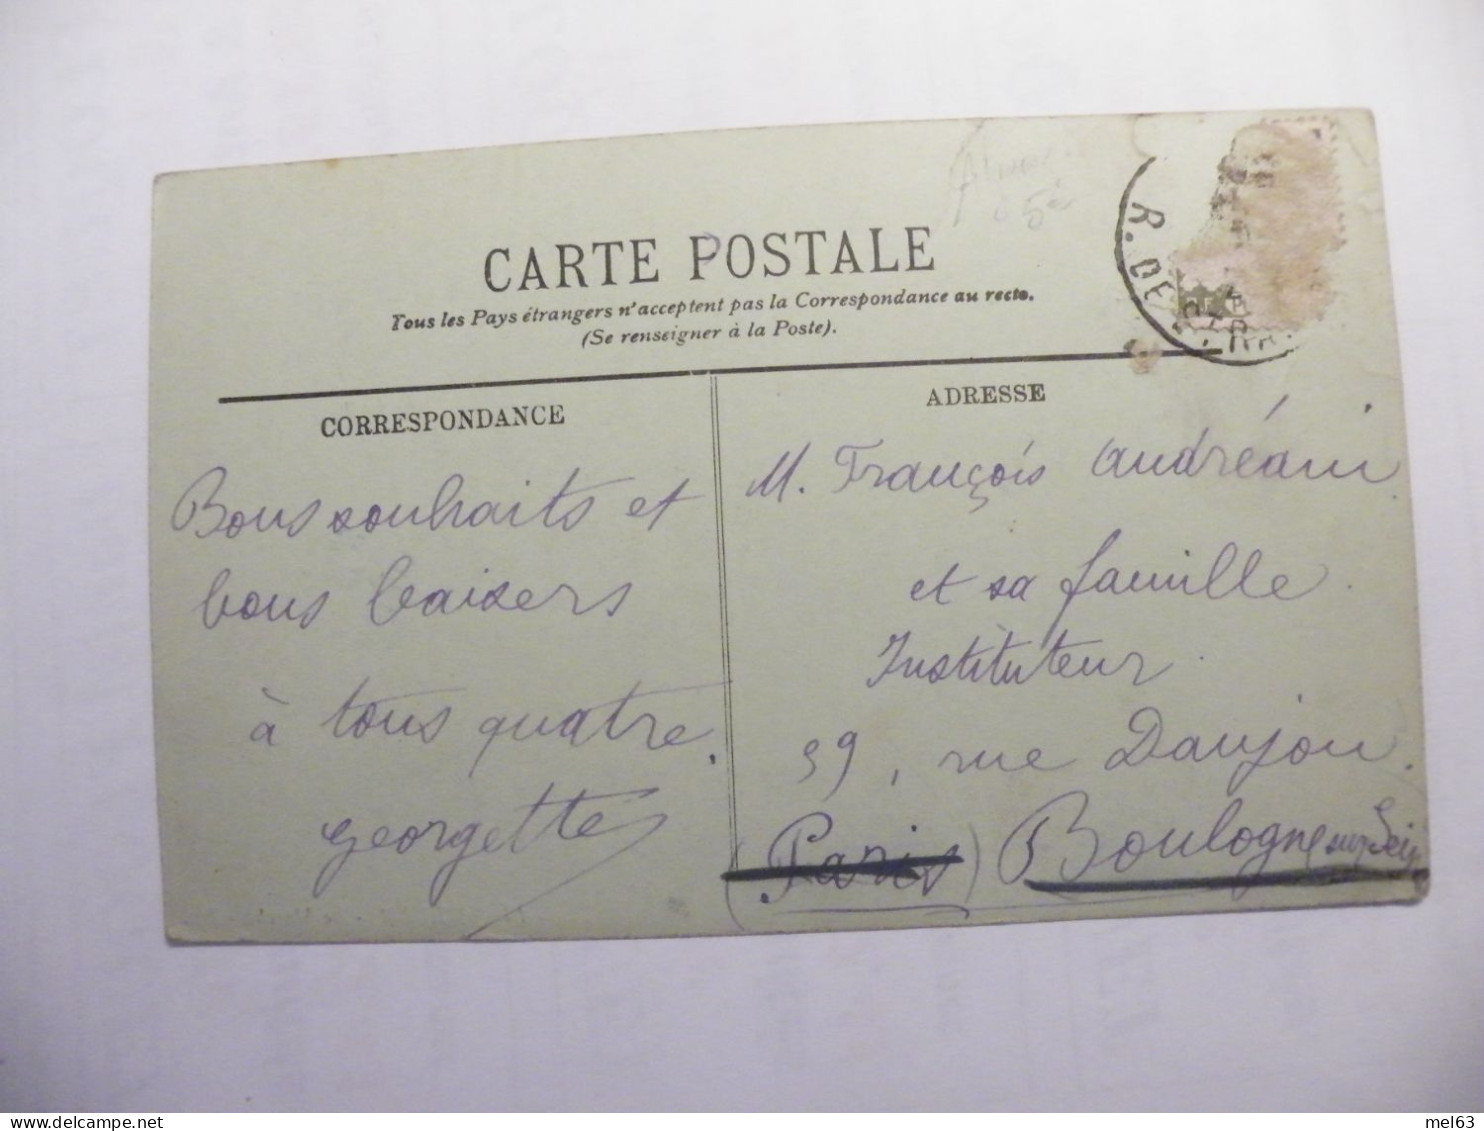 CARTE POSTALE
Tous les Pays étrangers n'acceptent pas la Correspondance au recto.
(Se renseigner à la Poste).
CORRESPONDANCE
Bons souhaits et
bons baisers
à tous quatre.
Georgette
ADRESSE
M. François Andréani
et sa famille.
Instituteur.
59, rue Danjou.
(Paris) Boulogne sur Seine
R. DE
mel63